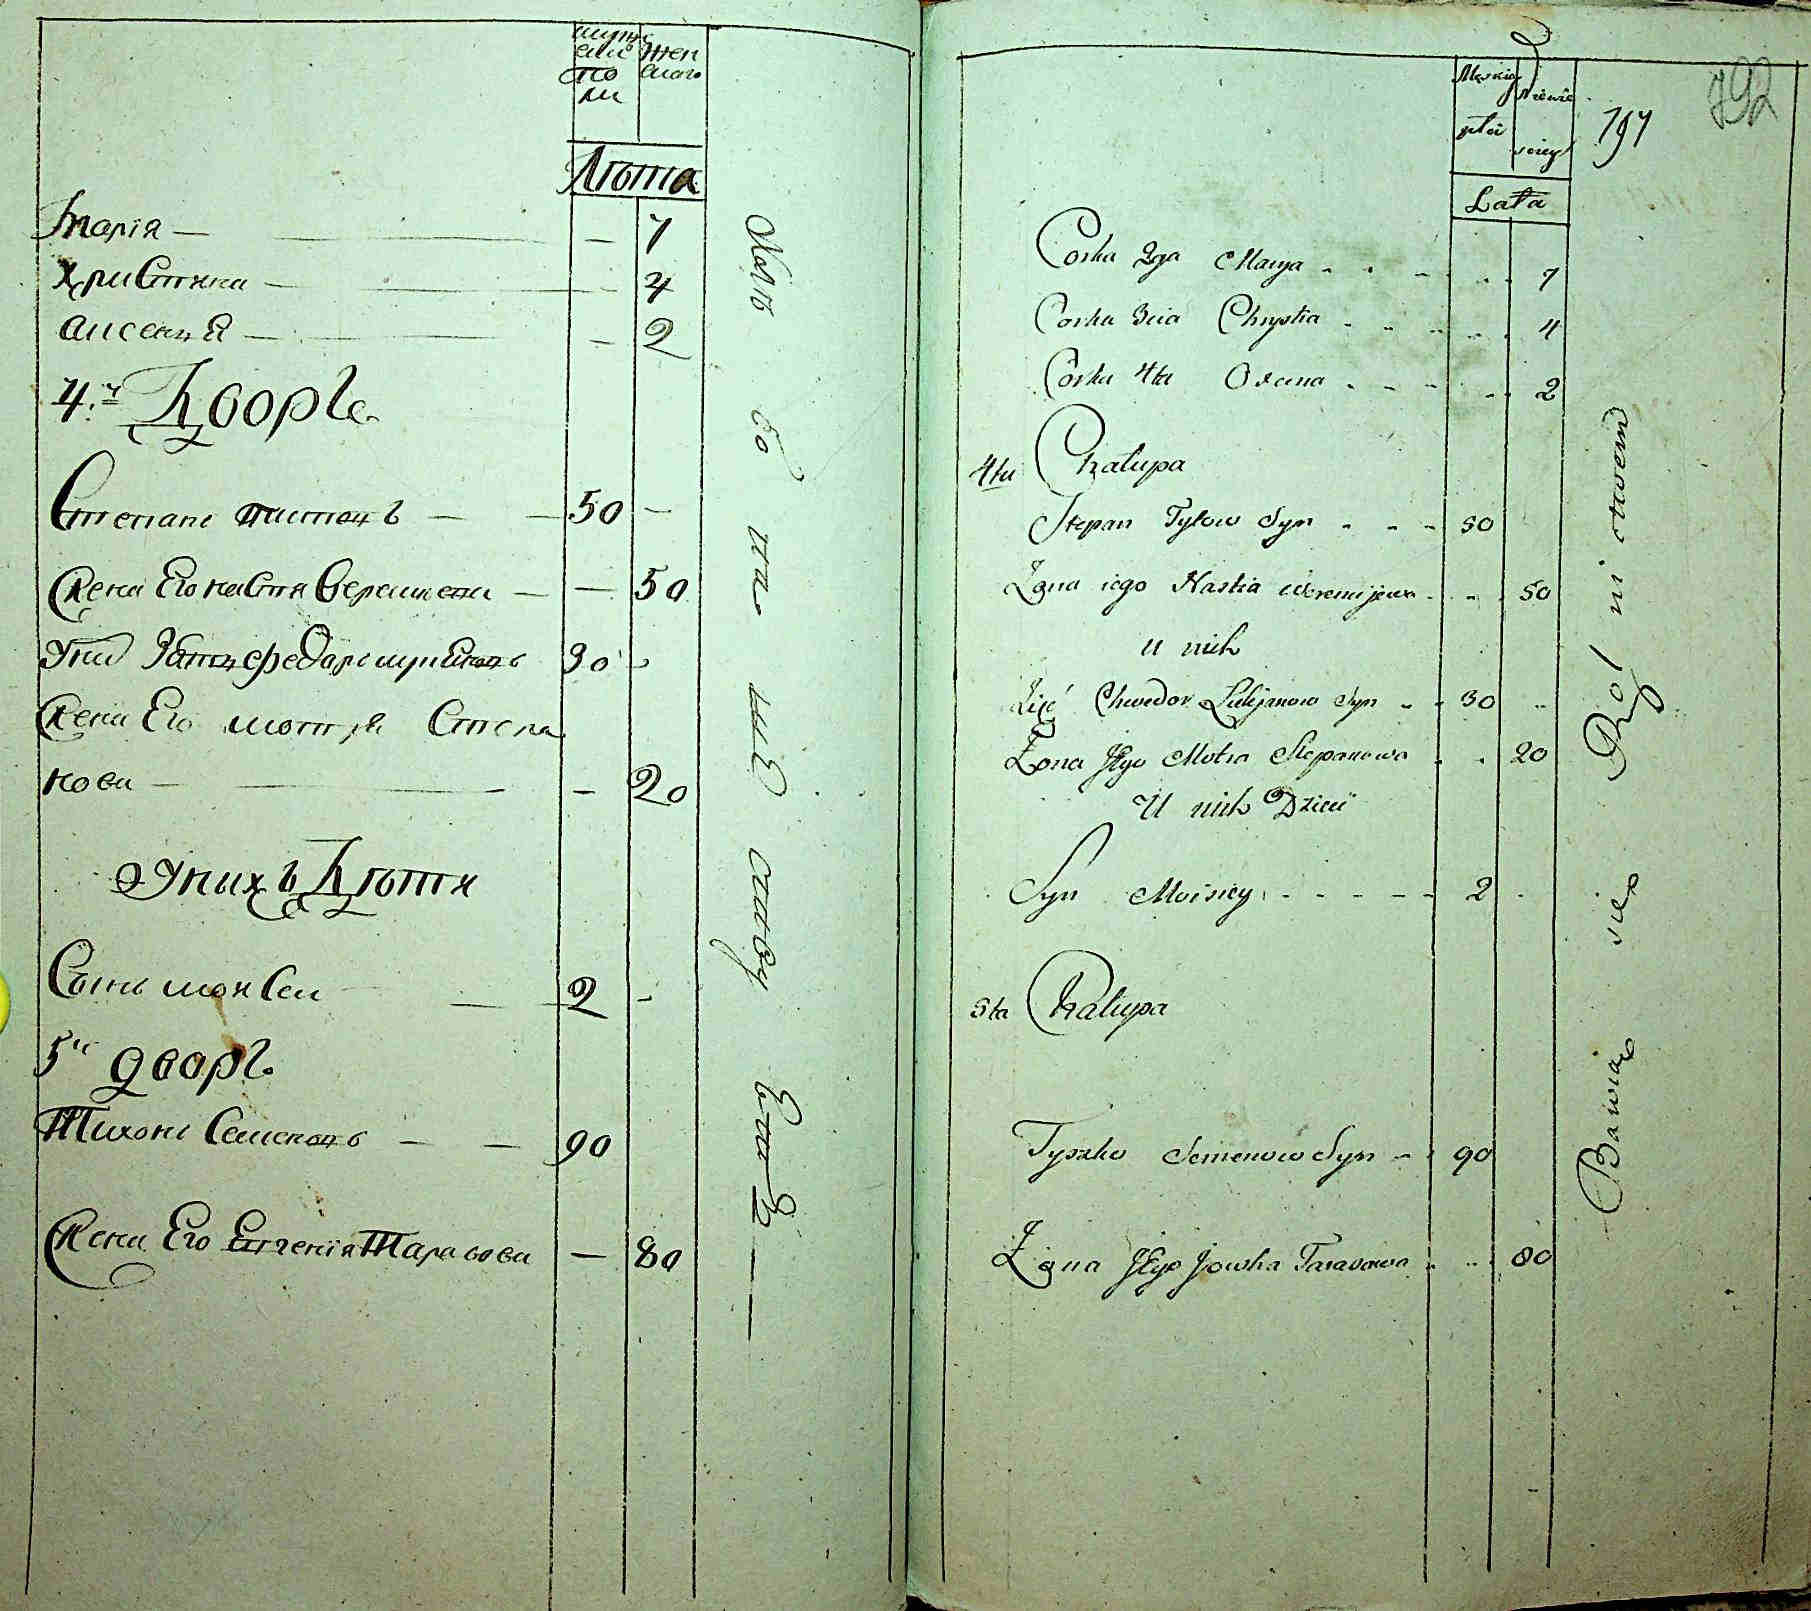 мужс
жен
ска
скаго
по
ли
Лѣта
Марія — — 7
Христина — 4
Аксенія — — 2
4.й Дворъ
Степанъ Титовъ — — 50 —
Жена Его Настя Веремиева — — 50
У них Зать Федоръ 30 -
Жена Его Мотря Степа
нова — — 20
У нихъ Дѣти
Сынъ Моисей — 2 -
5й дворъ
Тихонъ Семеновъ — — 90
Жена Его Евгенія Тарасова — 80
Męskiey
Niewie
płci
sciey
Lata
797
792
Corka 2ga Marya 7
Corka 3cia Chrystia 4
Corka 4ta Oxena 2
4ta Chalupa
Stepan Tytow Syn 50
Żona iego Nastia Weremijewa 50
U nich
Zięć Chwedor Lukjanow Syn 30
Żona Jego Motra Stepanowa 20
U nich Dzieci
Syn Moisiey 2
5ta Chalupa
Tyszko Semenow Syn 90
Żona Jego Jowka Tarasowa 80
Bawią się Rol ni ctwem